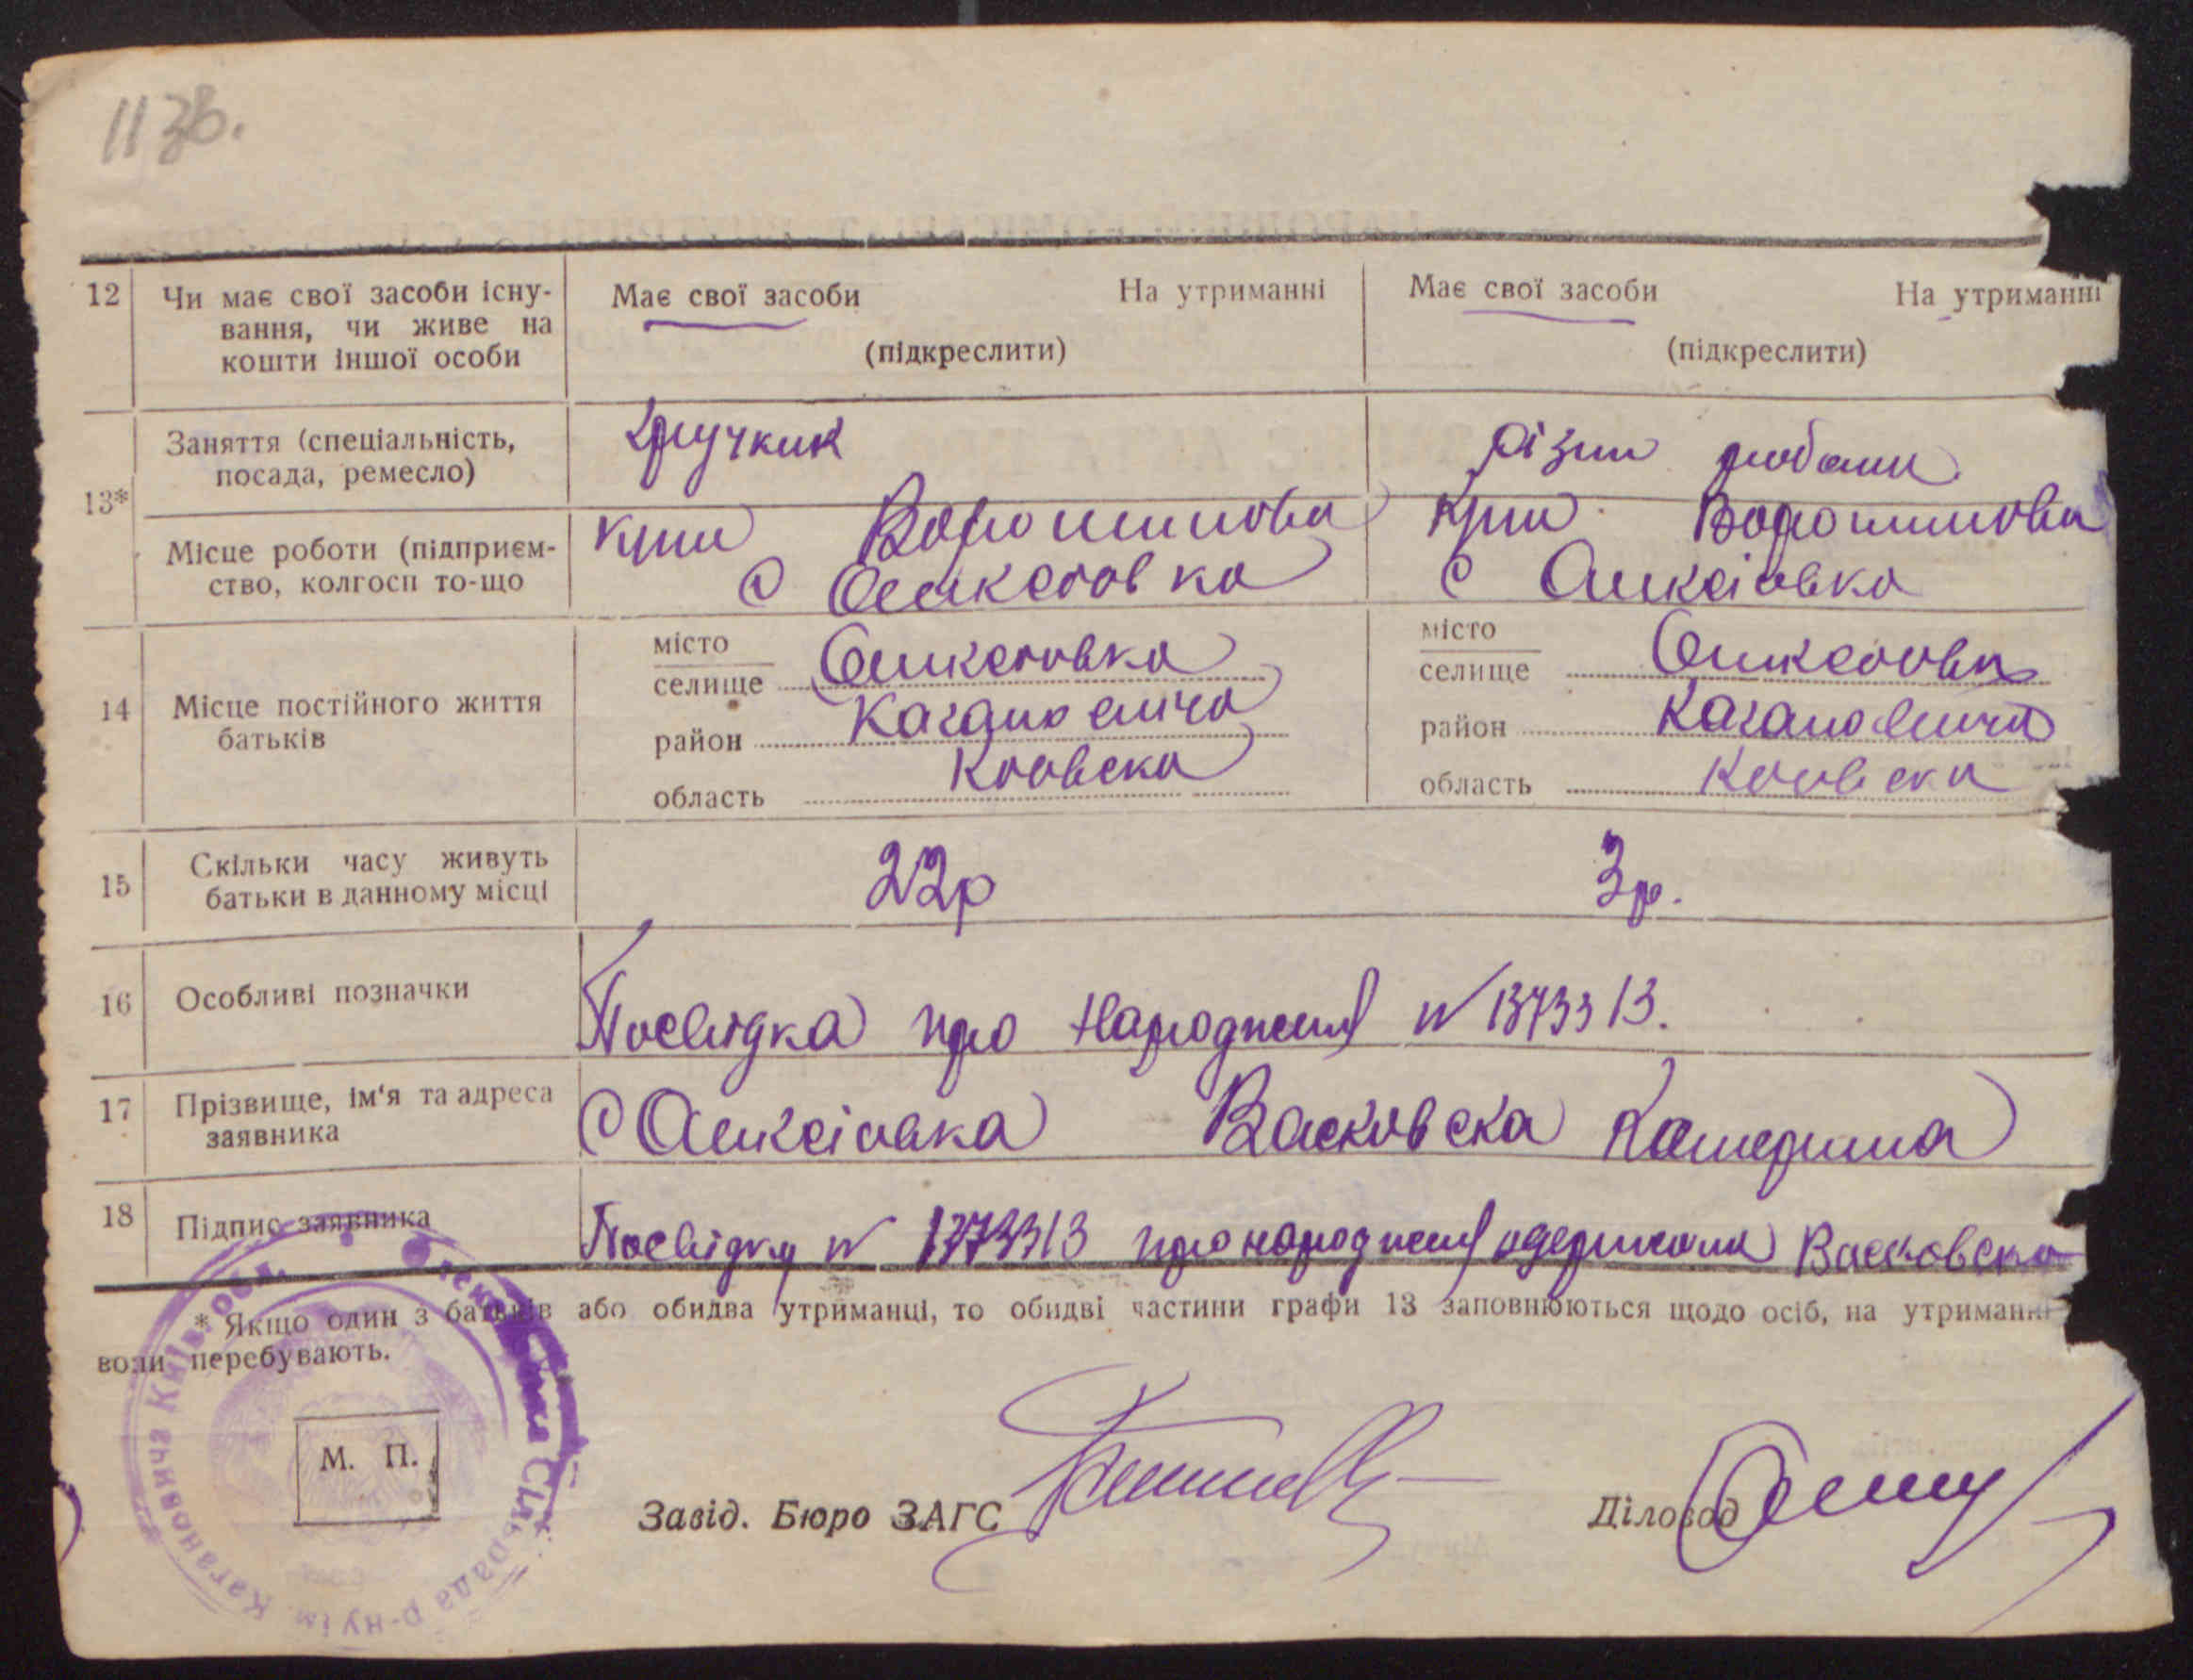 113б.
12 Чи має свої засоби існу-
вання, чи живе на
кошти іншої особи
Має свої засоби На утриманні
(підкреслити)
Має свої засоби На утриманні
(підкреслити)
13*
Заняття (спеціальність,
посада, ремесло)
різни роботи
Місце роботи (підприєм-
ство, колгосп то-що
Ворошилова
с Оликсіовка
Ворошилова
с Оликсіовка
14 Місце постійного життя
батьків
місто
селище Оликсіовка
район Кагановича
область Київска
місто
селище Оликсіовка
район Кагановича
область Київска
15 Скільки часу живуть
батьки в данному місці
22р
3р.
16 Особливі позначки
Посвідка про Народженя N 1373313.
17 Прізвище, ім'я та адреса
заявника
с Оликсіовка Васковска Катерина
18 Підпис заявника
Посвідку N 1373313 про народженя одержала Васковска
* Якщо один з батьків або обидва утриманці, то обидві частини графи 13 заповнюються щодо осіб, на утриманні
воли перебувають.
М. П.
Сільрада р-ну ім. Кагановича Київ. обл.
Завід. Бюро ЗАГС
Діловод